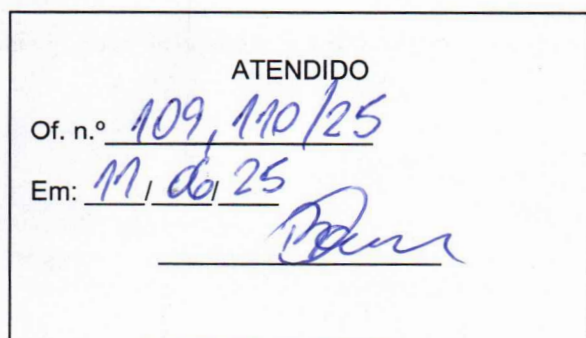 ATENDIDO
Of. n.º 109, 110/25
Em: 11/06/25